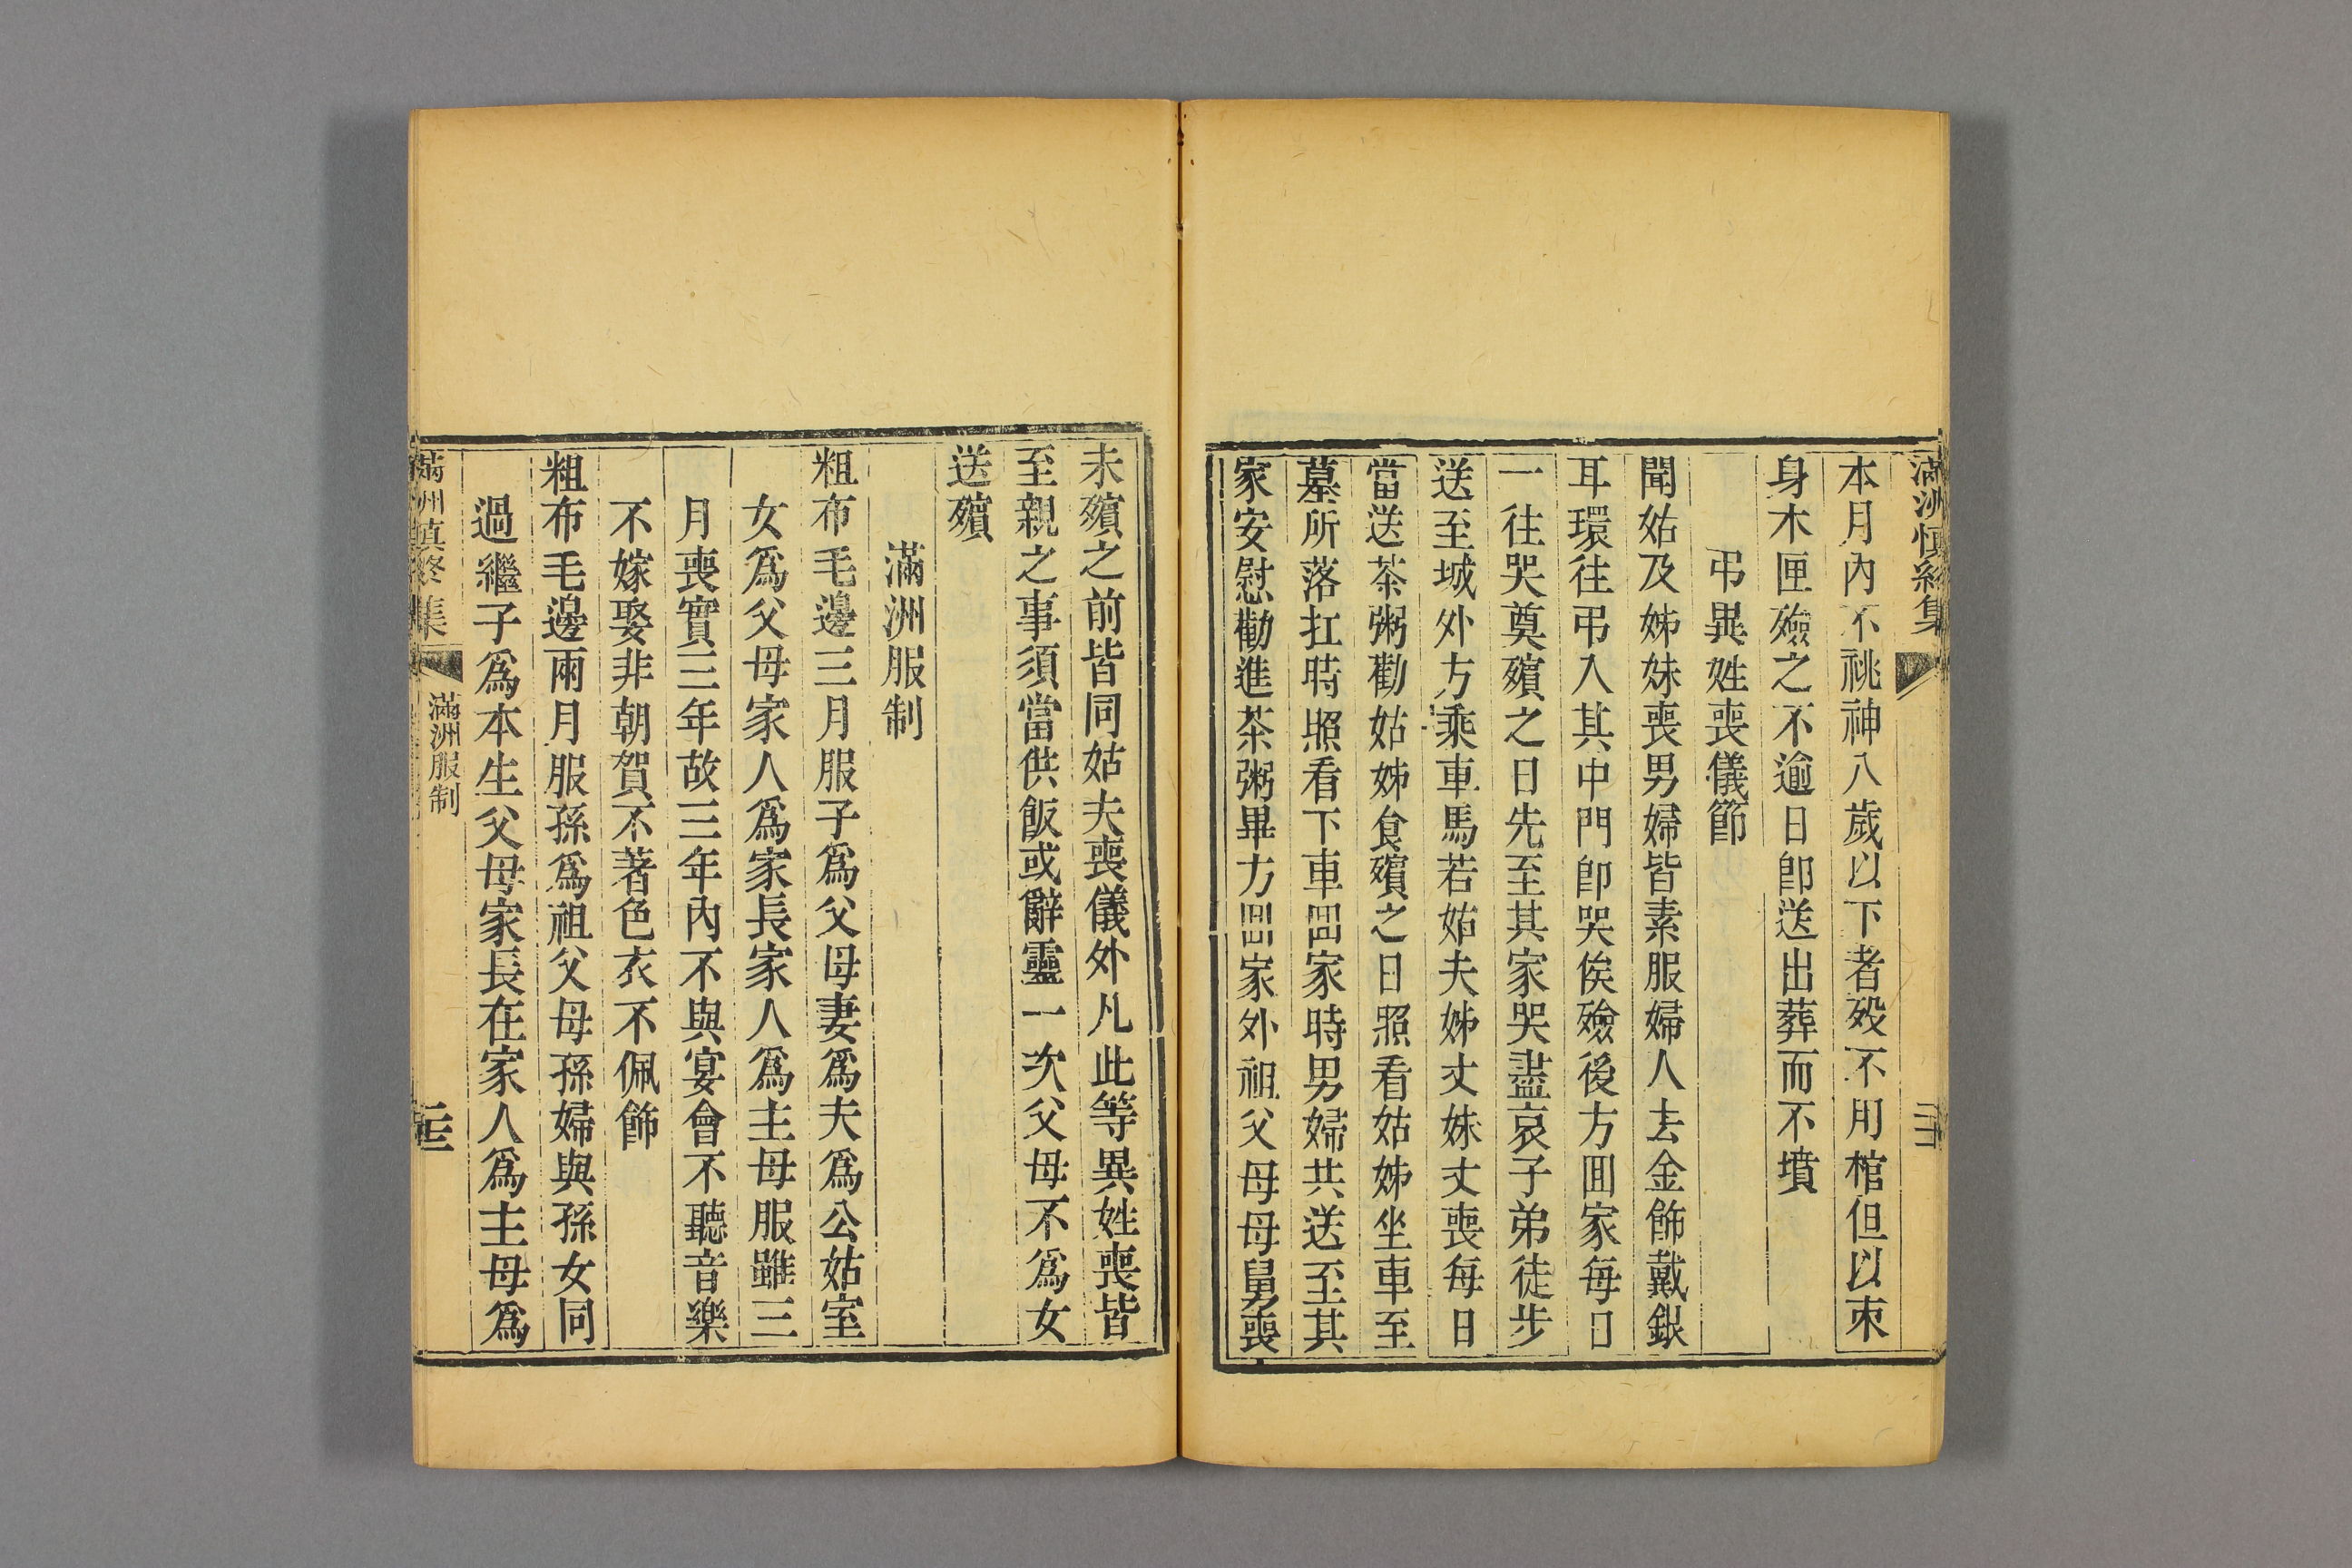 滿洲慎終集
本月內不祧神八歲以下者殁不用棺但以朿
身木匣殮之不逾日卽送出葬而不墳
弔異姓喪儀節
聞姑及姊妹喪男婦皆素服婦人去金飾戴銀
耳環往弔入其中門卽哭俟殮後方囬家每日
一往哭奠殯之日先至其家哭盡哀子弟徒步
送至城外方乘車馬若姑夫姊丈妹丈喪每日
當送茶粥勸姑姊食殯之日照看姑姊坐車至
墓所落扛時照看下車囬家時男婦共送至其
家安慰勸進茶粥畢方囬家外祖父母母舅喪
未殯之前皆同姑夫喪儀外凡此等異姓喪皆
至親之事須當供飯或辭靈一次父母不爲女
送殯
滿洲服制
粗布毛邊三月服子爲父母妻爲夫爲公姑室
女爲父母家人爲家長家人爲主母服雖三
月喪實三年故三年內不與宴會不聽音樂
不嫁娶非朝賀不著色衣不佩飾
粗布毛邊兩月服孫爲祖父母孫婦與孫女同
過繼子爲本生父母家長在家人爲主母爲
滿洲慎終集
滿洲服制